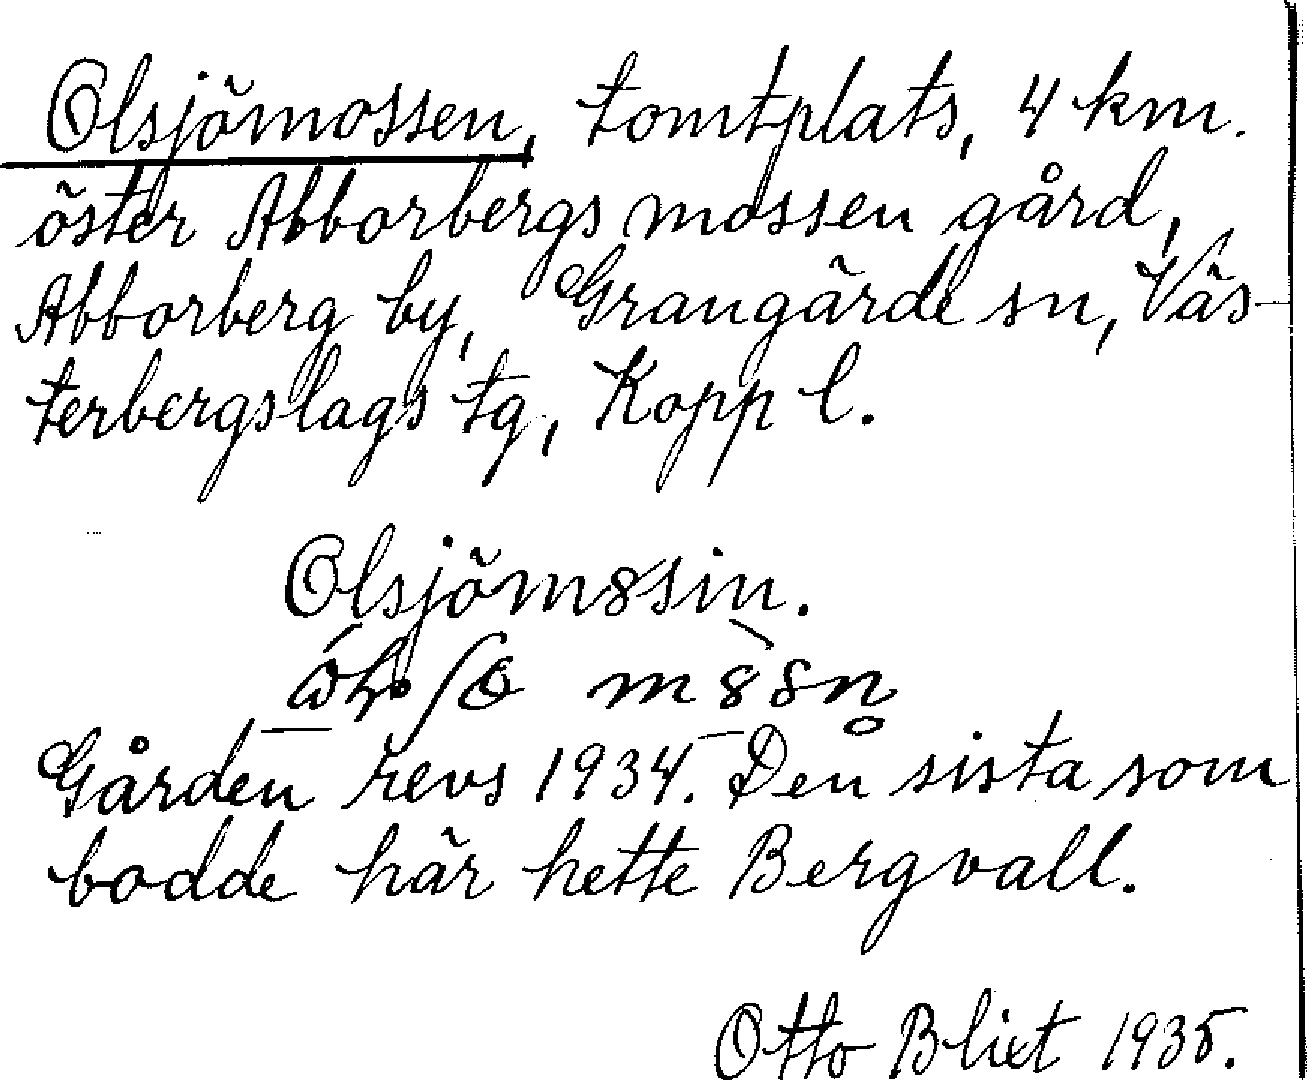 Olsjömossen, tomtplats, 4 km.
öster Abborbergsmossen gård,
Abborberg by, Grangärde sn, Väs-
terbergslags tg, Kopp l.
Olsjöm8sin.
Gården revs 1934. Den sista som
bodde här hette Bergvall.
Otto Blixt 1935.